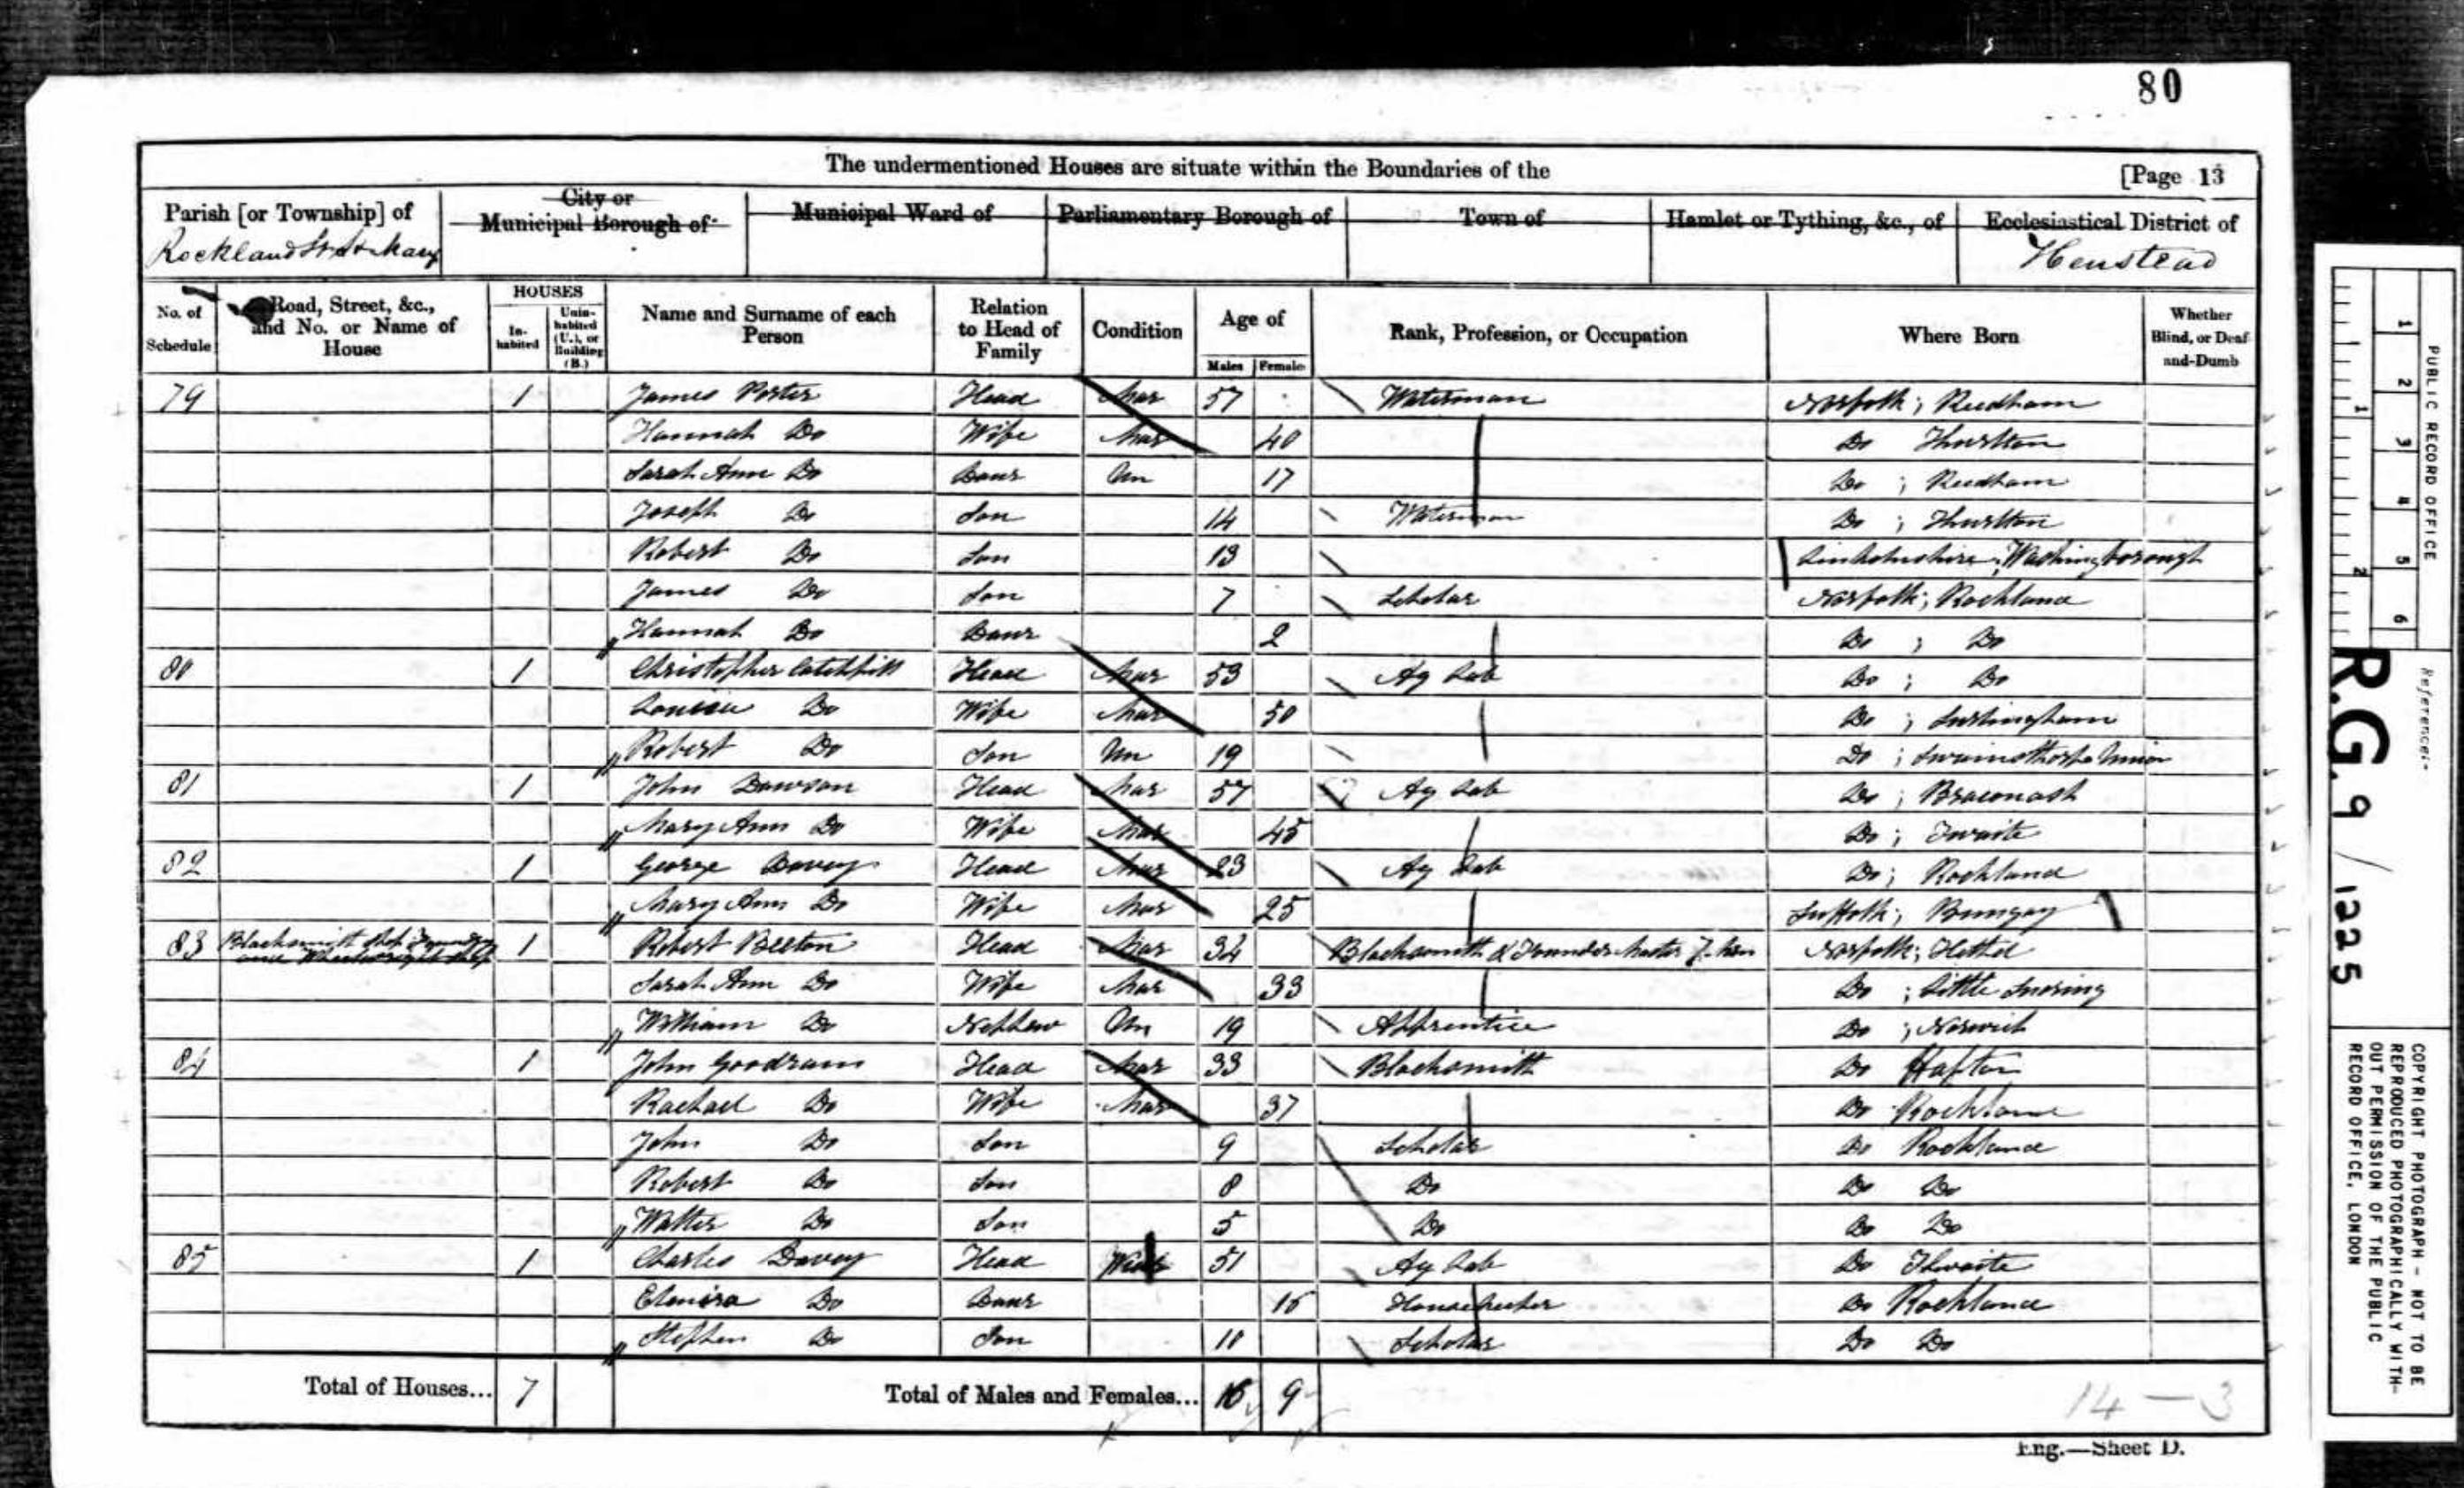 80
The undermentioned Houses are situate within the Boundaries of the [Page 13
Parish [or Township] of City or Municipal Borough of Municipal Ward of Parliamentary Borough of Town of Hamlet or Tything, &c., of Ecclesiastical District of
Rockland St Mary Henstead
No. of Schedule Road, Street, &c., and No. or Name of House HOUSES In-habited Unin-habited (U.), or Building (B.) Name and Surname of each Person Relation to Head of Family Condition Age of Males Females Rank, Profession, or Occupation Where Born Whether Blind, or Deaf-and-Dumb
79 1 James Porter Head Mar 57 Waterman Norfolk; Reedham
Hannah Do Wife Mar 40 Do Thurlton
Sarah Ann Do Daur Un 17 Do ; Reedham
Joseph Do Son 14 Waterman Do ; Thurlton
Robert Do Son 13 Lincolnshire; Washingborough
James Do Son 7 Scholar Norfolk; Rockland
Hannah Do Daur 2 Do ; Do
80 1 Christopher Head Mar 53 Ag Lab Do ; Do
Louisa Do Wife Mar 50 Do ; Surlingham
Robert Do Son Un 19 Do ; Swainsthorpe Union
81 1 John Dawson Head Mar 57 Ag Lab Do ; Braconash
Mary Ann Do Wife Mar 45 Do ; Twaite
82 1 George Davey Head Mar 23 Ag Lab Do; Rockland
Mary Ann Do Wife Mar 25 Suffolk; Bungay
83 Blacksmith Shop Foundry and Wheelwright Shop 1 Robert Beeton Head Mar 32 Blacksmith & Founder Master 7 Men Norfolk; Hethel
Sarah Ann Do Wife Mar 33 Do ; Little Snoring
William Do Nephew Un 19 Apprentice Do ; Norwich
84 1 John Goodrum Head Mar 33 Blacksmith Do Hapton
Rachael Do Wife Mar 37 Do Rockland
John Do Son 9 Scholar Do Rockland
Robert Do Son 8 Do Do Do
Walter Do Son 5 Do Do Do
85 1 Charles Davey Head 51 Ag Lab Do Thwaite
Do Daur Housekeeper Do Rockland
Stephen Do Son Scholar Do Do
Total of Houses... 7 Total of Males and Females... 16 9
14 - 3
Eng.—Sheet D.
PUBLIC RECORD OFFICE
1 2 3 4 5 6
1 2
Reference:-
R.G. 9 / 1225
COPYRIGHT PHOTOGRAPH - NOT TO BE
REPRODUCED PHOTOGRAPHICALLY WITH-
OUT PERMISSION OF THE PUBLIC
RECORD OFFICE, LONDON